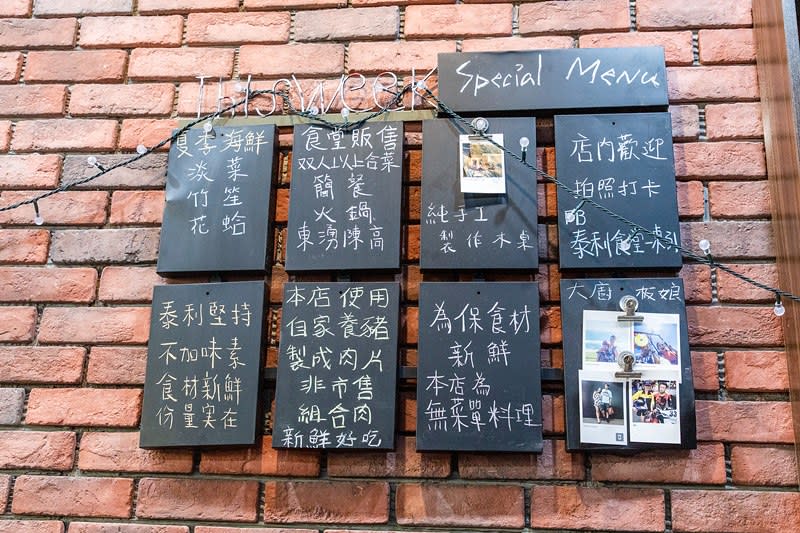 THIS WEEK
Special Menu
夏季海鮮
淡菜
竹笙
花蛤
食堂販售
双人以上合菜
簡餐
火鍋
東湧陳高
純手工
製作木桌
店內歡迎
拍照打卡
泰利食堂
泰利堅持
不加味素
食材新鮮
份量実在
本店使用
自家養豬
製成肉片
非市售
組合肉
新鮮好吃
為保食材
新鮮
本店為
無菜單料理
大廚 板娘